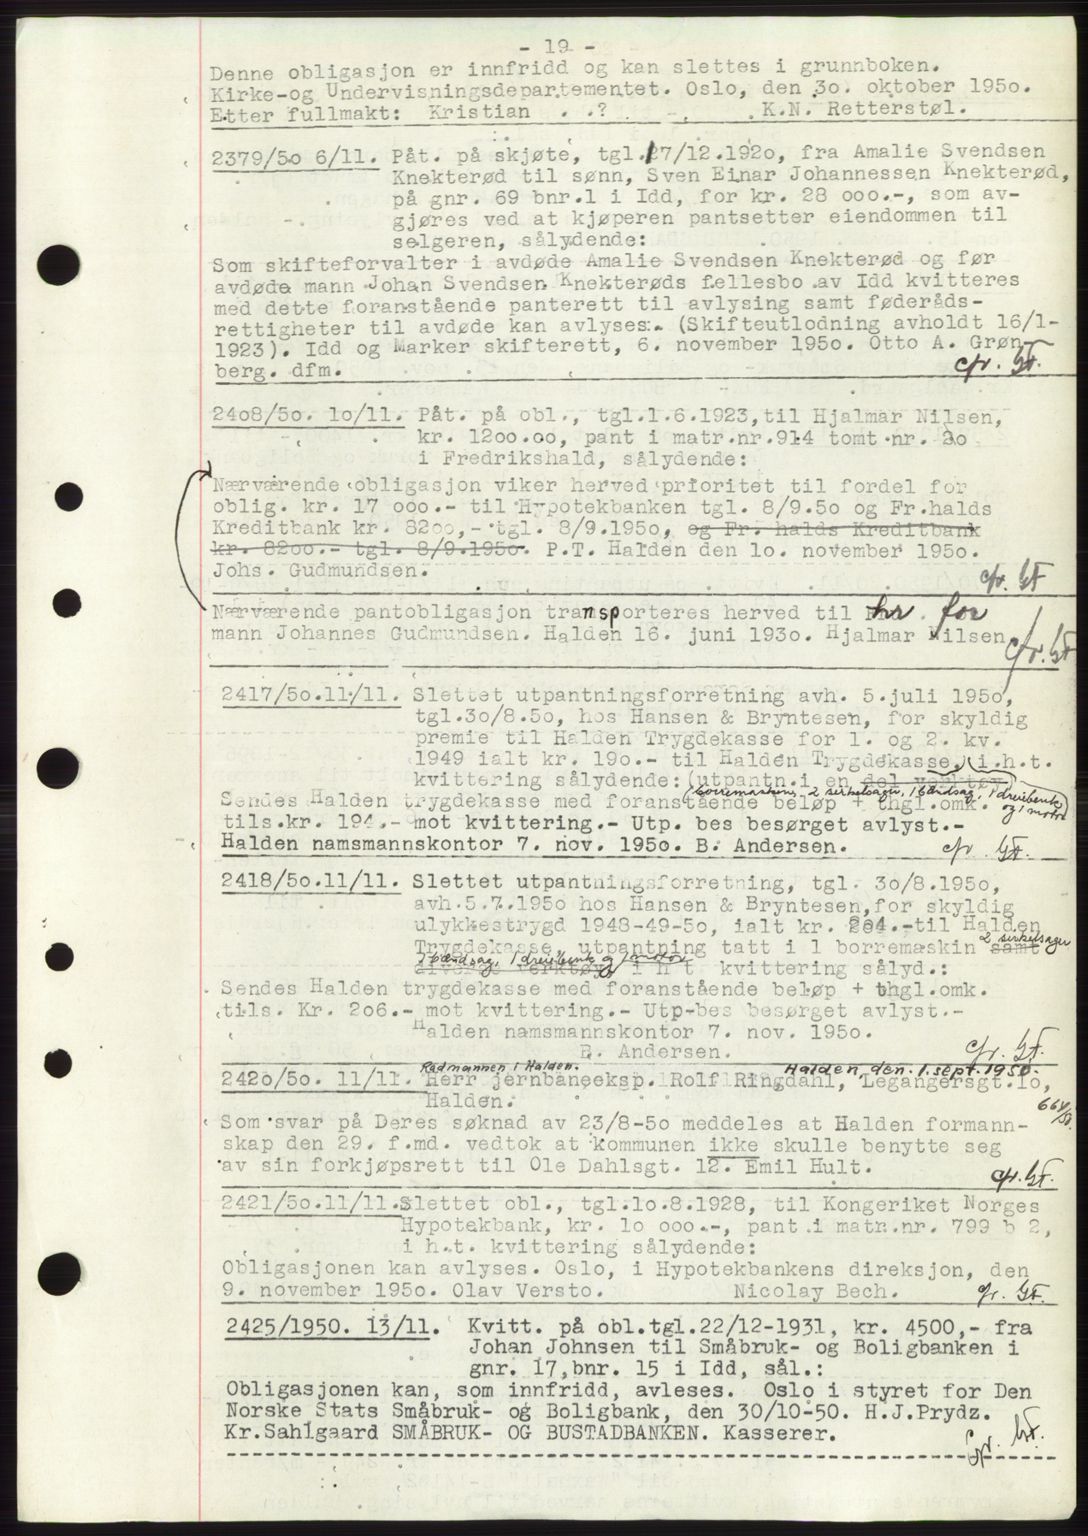 - 19 -
Denne obligasjon er innfridd og kan slettes i grunnboken.
Kirke-og Undervisningsdepartementet. Oslo, den 30. oktober 1950.
Etter fullmakt: Kristian . .? K.N. Retterstøl.
2379/50 6/11. Påt. på skjøte, tgl.17/12.1920, fra Amalie Svendsen
Knekterød til sønn, Sven Einar Johannessen Knekterød,
på gnr. 69 bnr.1 i Idd, for kr. 28 000.-, som av-
gjøres ved at kjøperen pantsetter eiendommen til
selgeren, sålydende:
Som skifteforvalter i avdøde Amalie Svendsen Knekterød og før
avdøde mann Johan Svendsen Knekterøds fellesbo av Idd kvitteres
med dette foranstående panterett til avlysing samt føderåds-
rettigheter til avdøde kan avlyses. (Skifteutlodning avholdt 16/1-
1923). Idd og Marker skifterett, 6. november 1950. Otto A. Grøn-
berg. dfm. cfr. GF.
2408/50. 10/11. Påt. på obl., tgl.1.6.1923,til Hjalmar Nilsen,
kr. 1200.00, pant i matr.nr.914 tomt nr. 20
i Fredrikshald, sålydende:
Nærværende obligasjon viker herved prioritet til fordel for
oblig. kr. 17 000.- til Hypotekbanken tgl. 8/9.50 og Fr.halds
Kreditbank kr. 8200,- tgl. 8/9.1950, og Fr. halds Kreditbank
kr. 8200.- tgl. 8/9.1950. P.T. Halden den 10. november 1950.
Johs. Gudmundsen. cfr. GF
Nærværende pantobligasjon transporteres herved til hr. for
mann Johannes Gudmundsen. Halden 16. juni 1930. Hjalmar Nilsen
cfr. GF
2417/50.11/11. Slettet utpantningsforretning avh. 5.juli 1950,
tgl.30/8.50, hos Hansen & Bryntesen, for skyldig
premie til Halden Trygdekasse for 1. og 2. kv.
1949 ialt kr. 190.- til Halden Trygdekasse. i.h.t.
kvittering sålydende: (utpantn.i en del verktøy)
(borremaskin, 2 sirkelsager, 1 båndsag, 1 dreiebenk
og 1 motor)
Sendes Halden trygdekasse med foranstående beløp + thgl.omk.
tils.kr. 194.- mot kvittering.- Utp. bes besørget avlyst.-
Halden namsmannskontor 7. nov. 1950. B. Andersen. cfr. GF.
2418/50.11/11. Slettet utpantningsforretning, tgl. 30/8.1950,
avh.5.7.1950 hos Hansen & Bryntesen,for skyldig
ulykkestrygd 1948-49-50, ialt kr. 204.-til Halden
Trygdekasse, utpantning tatt i 1 borremaskin samt 2 sirkelsager
1 båndsag, 1 dreiebenk og 1 motor
diverse verktøy i h t. kvittering sålyd.:
Sendes Halden trygdekasse med foranstående beløp + thgl.omk.
tils. Kr. 206.- mot kvittering.- Utp-bes besørget avlyst.-
Halden namsmannskontor 7. nov. 1950.
B. Andersen. cfr. GF.
Radmannen i Halden. Halden, den 1. sept. 1950.
2420/50. 11/11. Herr jernbaneeksp. Rolf Ringdahl, Legangersgt.10,
Halden. 664/50.
Som svar på Deres søknad av 23/8-50 meddeles at Halden formann-
skap den 29. f.md. vedtok at kommunen ikke skulle benytte seg
av sin forkjøpsrett til Ole Dahlsgt. 12. Emil Hult. cfr. GF.
2421/50.11/11.Slettet obl., tgl.10.8.1928, til Kongeriket Norges
Hypotekbank, kr. 10 000.-, pant i matr.nr. 799 b 2,
i h.t. kvittering sålydende:
Obligasjonen kan avlyses. Oslo, i Hypotekbankens direksjon, den
9. november 1950. Olav Versto. Nicolay Bech. cfr. GF.
2425/1950. 13/11. Kvitt. på obl.tgl.22/12-1931, kr. 4500,- fra
Johan Johnsen til Småbruk- og Boligbanken i
gnr. 17,bnr. 15 i Idd, sål.:
Obligasjonen kan, som innfridd, avleses. Oslo i styret for Den
Norske Stats Småbruk- og Boligbank, den 30/10-50. H.J.Prydz.
Kr.Sahlgaard SMÅBRUK- OG BUSTADBANKEN. Kasserer. cfr. GF.